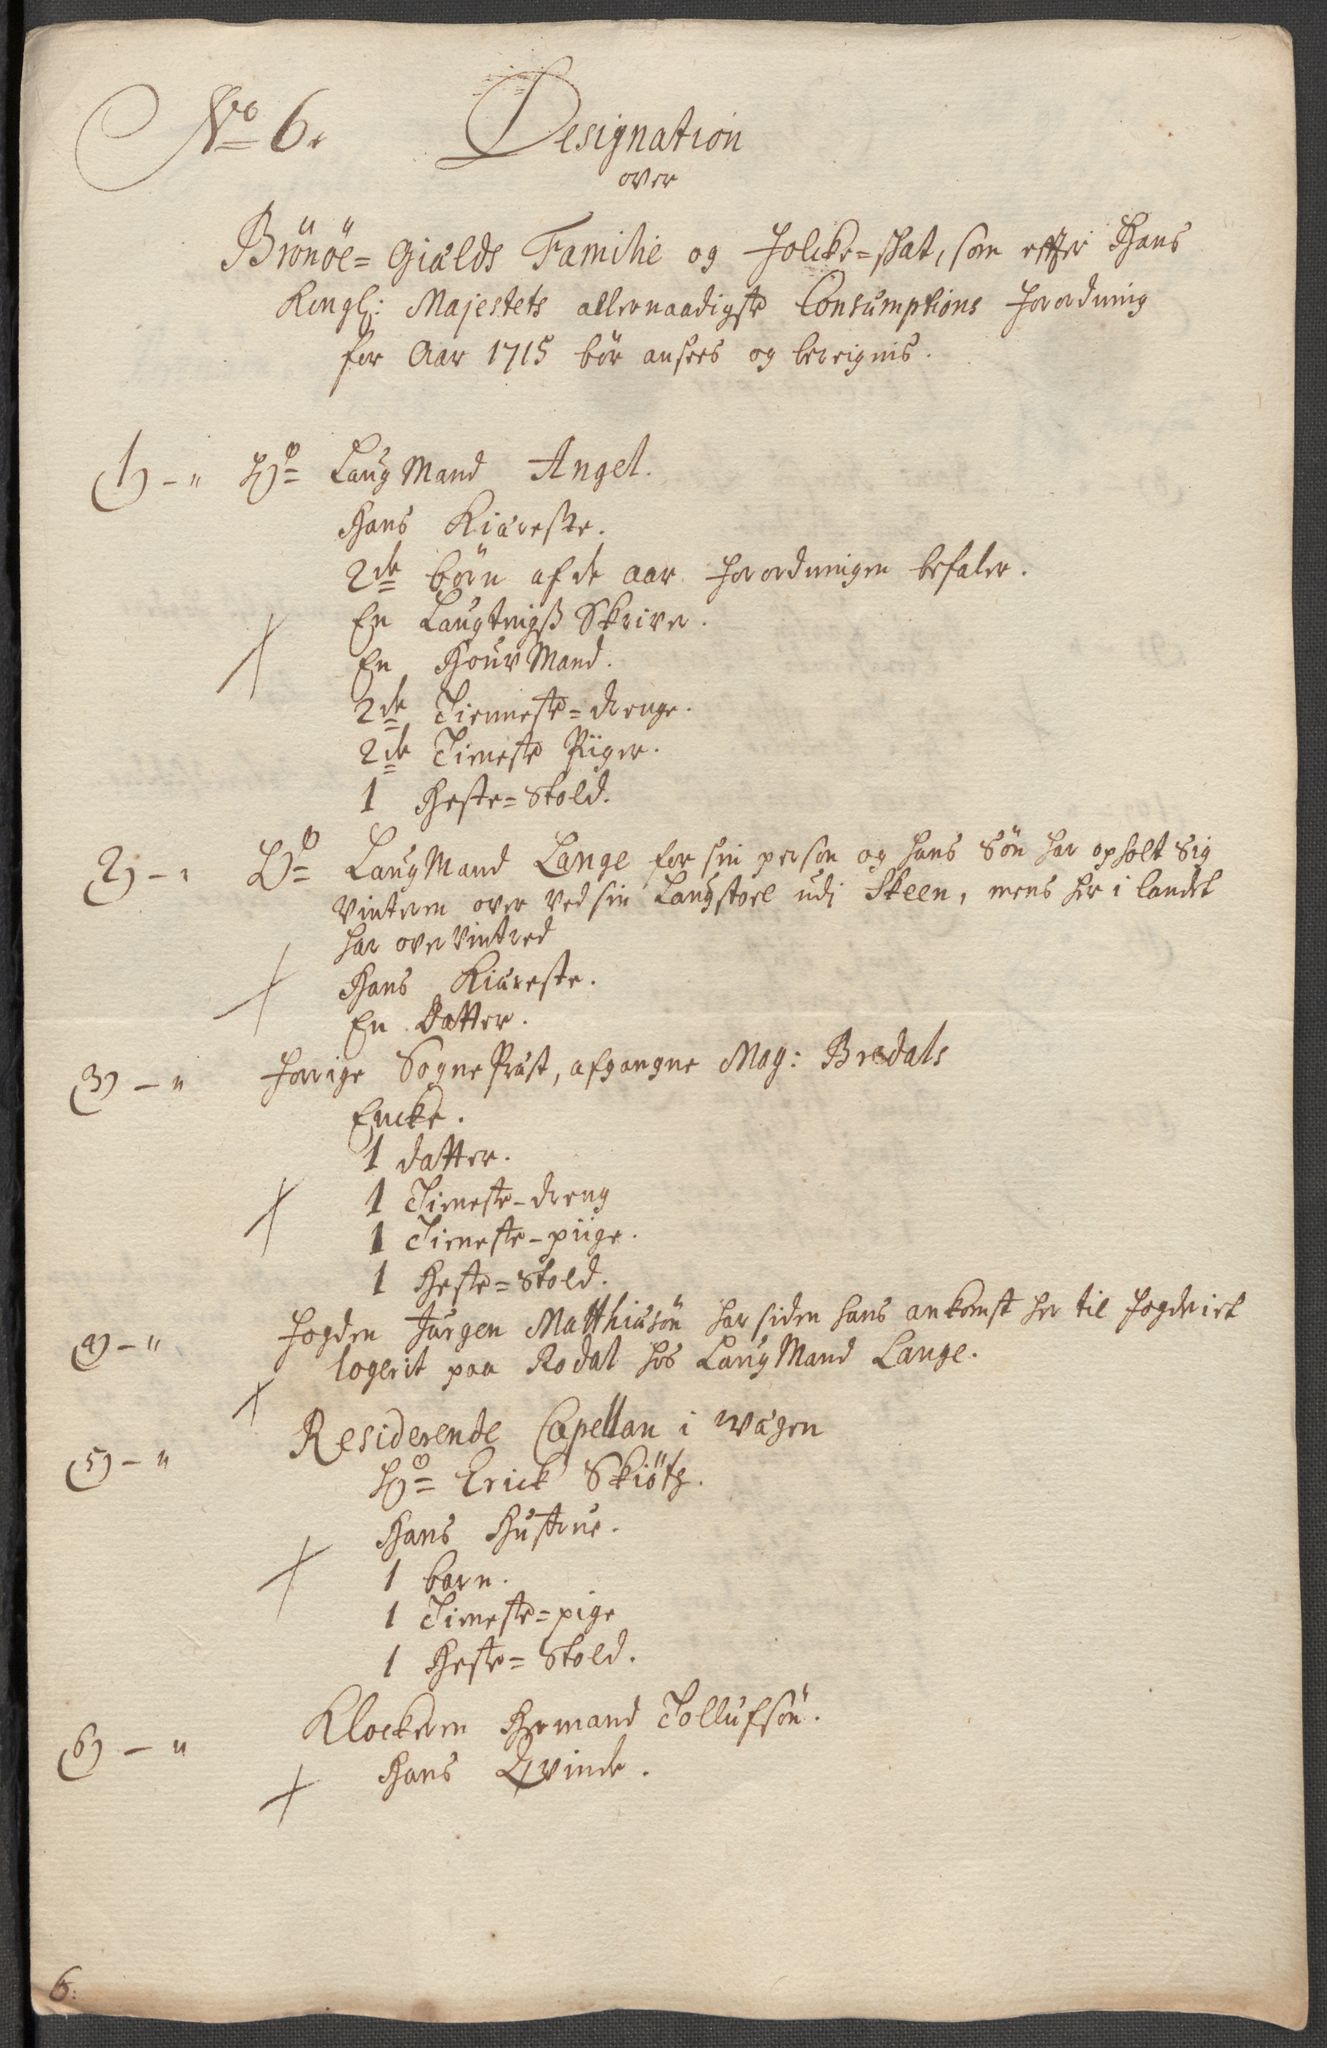 No 6.
Designation
over
Brönöe= Gialds Familie og Folcke=skat, som efter Hans
Kongl: Majestets allernaadigste Consumptions Forordning
for Aar 1715 bör ansees og bereignis.
1) - " Hr LaugMand Angel.
Hans Kiæreste.
2de börn af de aar Forordningen befaler.
En Laugtings Skriver.
En HouvMand.
2de Tienneste=drenge.
2de Tieneste Piiger.
1 Heste=Skold.
2) - " Hr LaugMand Lange for sin person og hans Sön har opholt sig
vinteren over ved sin Laugstoel udi Skeen, mens her i landet
har overvintred
Hans Kiæreste.
En Datter.
3) - " Forrige SognePræst, afgangne Mag: Bredals
Encke.
1 datter.
1 Tieneste-dreng
1 Tieneste-piige.
1 Heste=Skold.
4) - " Fogden Jürgen Matthiasön har siden hans ankomst her til Fogderiet
logerit paa Rodal hos LaugMand Lange.
5) - " Residerende Capellan i Wægen
Hr Erick Skiötz.
Hans Hustrue.
1 barn.
1 Tieneste=pige
1 Heste=Skold.
6) - " Klockeren Hermand Tollufsön.
Hans Qvinde.
6: